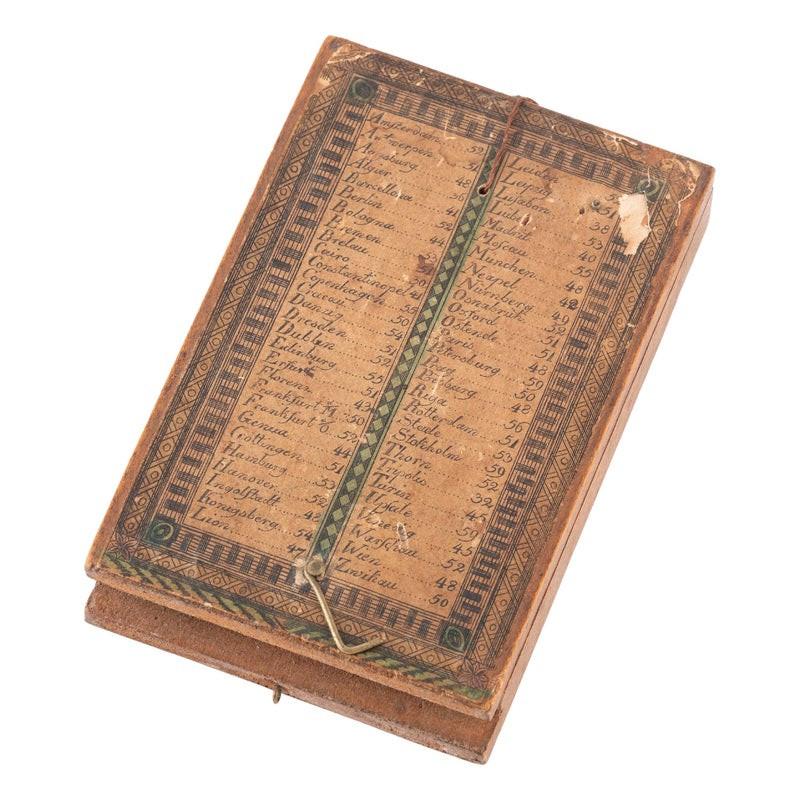 Amsterdam 52
Antwerpen 51
Augsburg 48
Algier 36
Barcellona 41
Berlin 52
Bologna 44
Bremen
Breslau
Cairo
Constantinopel 41
Copenhagen 55
Cracau 50
Danzig 54
Dresden 51
Dublin
Edinburg 55
Erfurt 51
Florenz 43
Frankfurt 50
Frankfurt 52
Genua 44
Göttingen 51
Hamburg 53
Hanover 52
Ingolstadt 48
Königsberg 54
Lion 47
Leiden
Leipzig 51
Lisabon 38
Lübek 53
Madrit 40
Moscau 55
Munchen 48
Neapel 42
Nürnberg 49
Osnabrük 52
Oxford 51
Ostende 51
Paris 48
Petersburg 59
Prag 50
48
Riga 56
Rotterdam 51
53
Stokholm 59
Thorn 52
Tripolis 32
Turin
Upsale 59
Venedig 45
Warschau 52
Wien 48
Zwikau 50